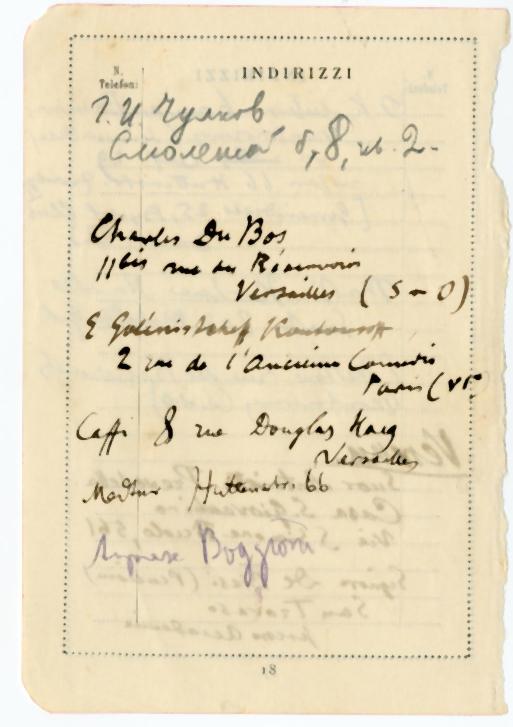 N.
Telefon:
INDIRIZZI
Г. И. Чулков
Смоленский б, 8, кв. 2.
Charles Du Bos
11 bis rue du Réservoirs
Versailles (S-O)
E Golénistcheff Koutousoff
2 rue de l'Ancienne Comédie
Paris (VI
Caffi 8 rue Douglas Haig
Versailles
Huttenstr. 66
Boggiova
18